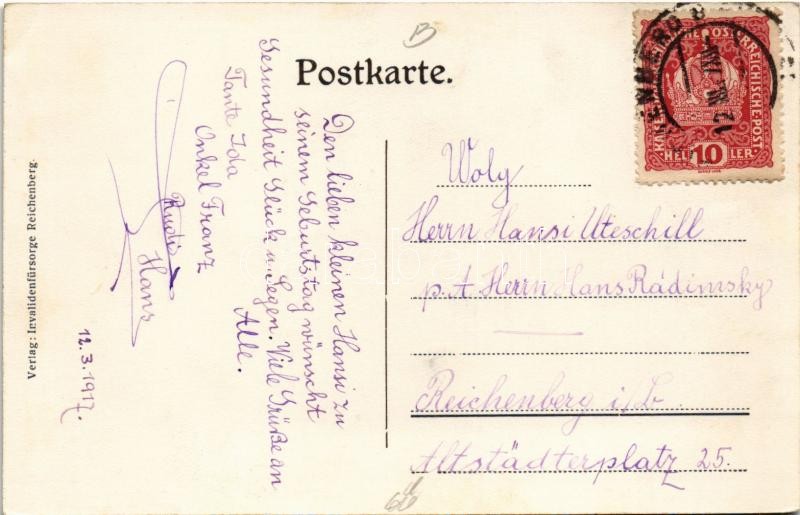 Postkarte.
Den lieben kleinen Hansi zu
seinem Geburtstag wünscht
Gesundheit Glück u. Segen. Viele Grüße an
Tante Ida Alle.
Onkel Franz
Rudi
Hans
12.3.1917.
Verlag: Invalidenfürsorge Reichenberg.
KAISERLICHE ÖSTERREICHISCHE POST
HELLER
10
12
Herrn Hansi Uteschill
p. A Herrn Hans Rádimsky
Reichenberg i/b
Altstädterplatz 25.
B